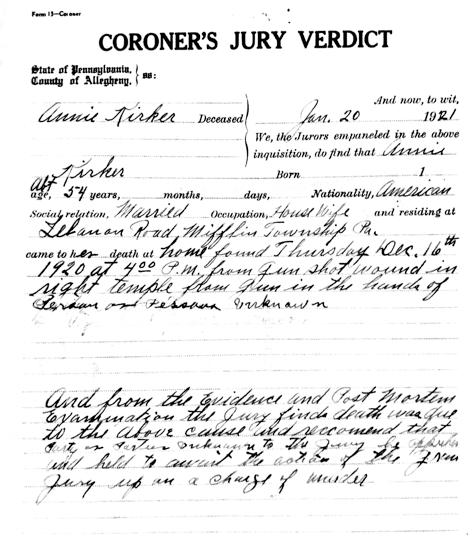 Form 13—Coroner
CORONER'S JURY VERDICT
State of Pennsylvania,
County of Allegheny. } ss:
And now, to wit,
Annie Kirker Deceased Jan. 20 1921
We, the Jurors empaneled in the above
inquisition, do find that Annie
Kirker Born 1
Abt
age, 54 years, months, days, Nationality, American
Social relation, Married Occupation, House Wife and residing at
Lebanon Road, Mifflin Township Pa.
came to her death at home found Thursday Dec. 16th
1920 at 4 00 P.M. from gun shot wound in
right temple from gun in the hands of
Person or Persons Unknown
And from the Evidence and Post Mortem
Examination the Jury finds death was due
to the above cause and reccomend that
Party or Parties Unknown to the Jury be
and held to await the action of the
Jury up on a charge of murder